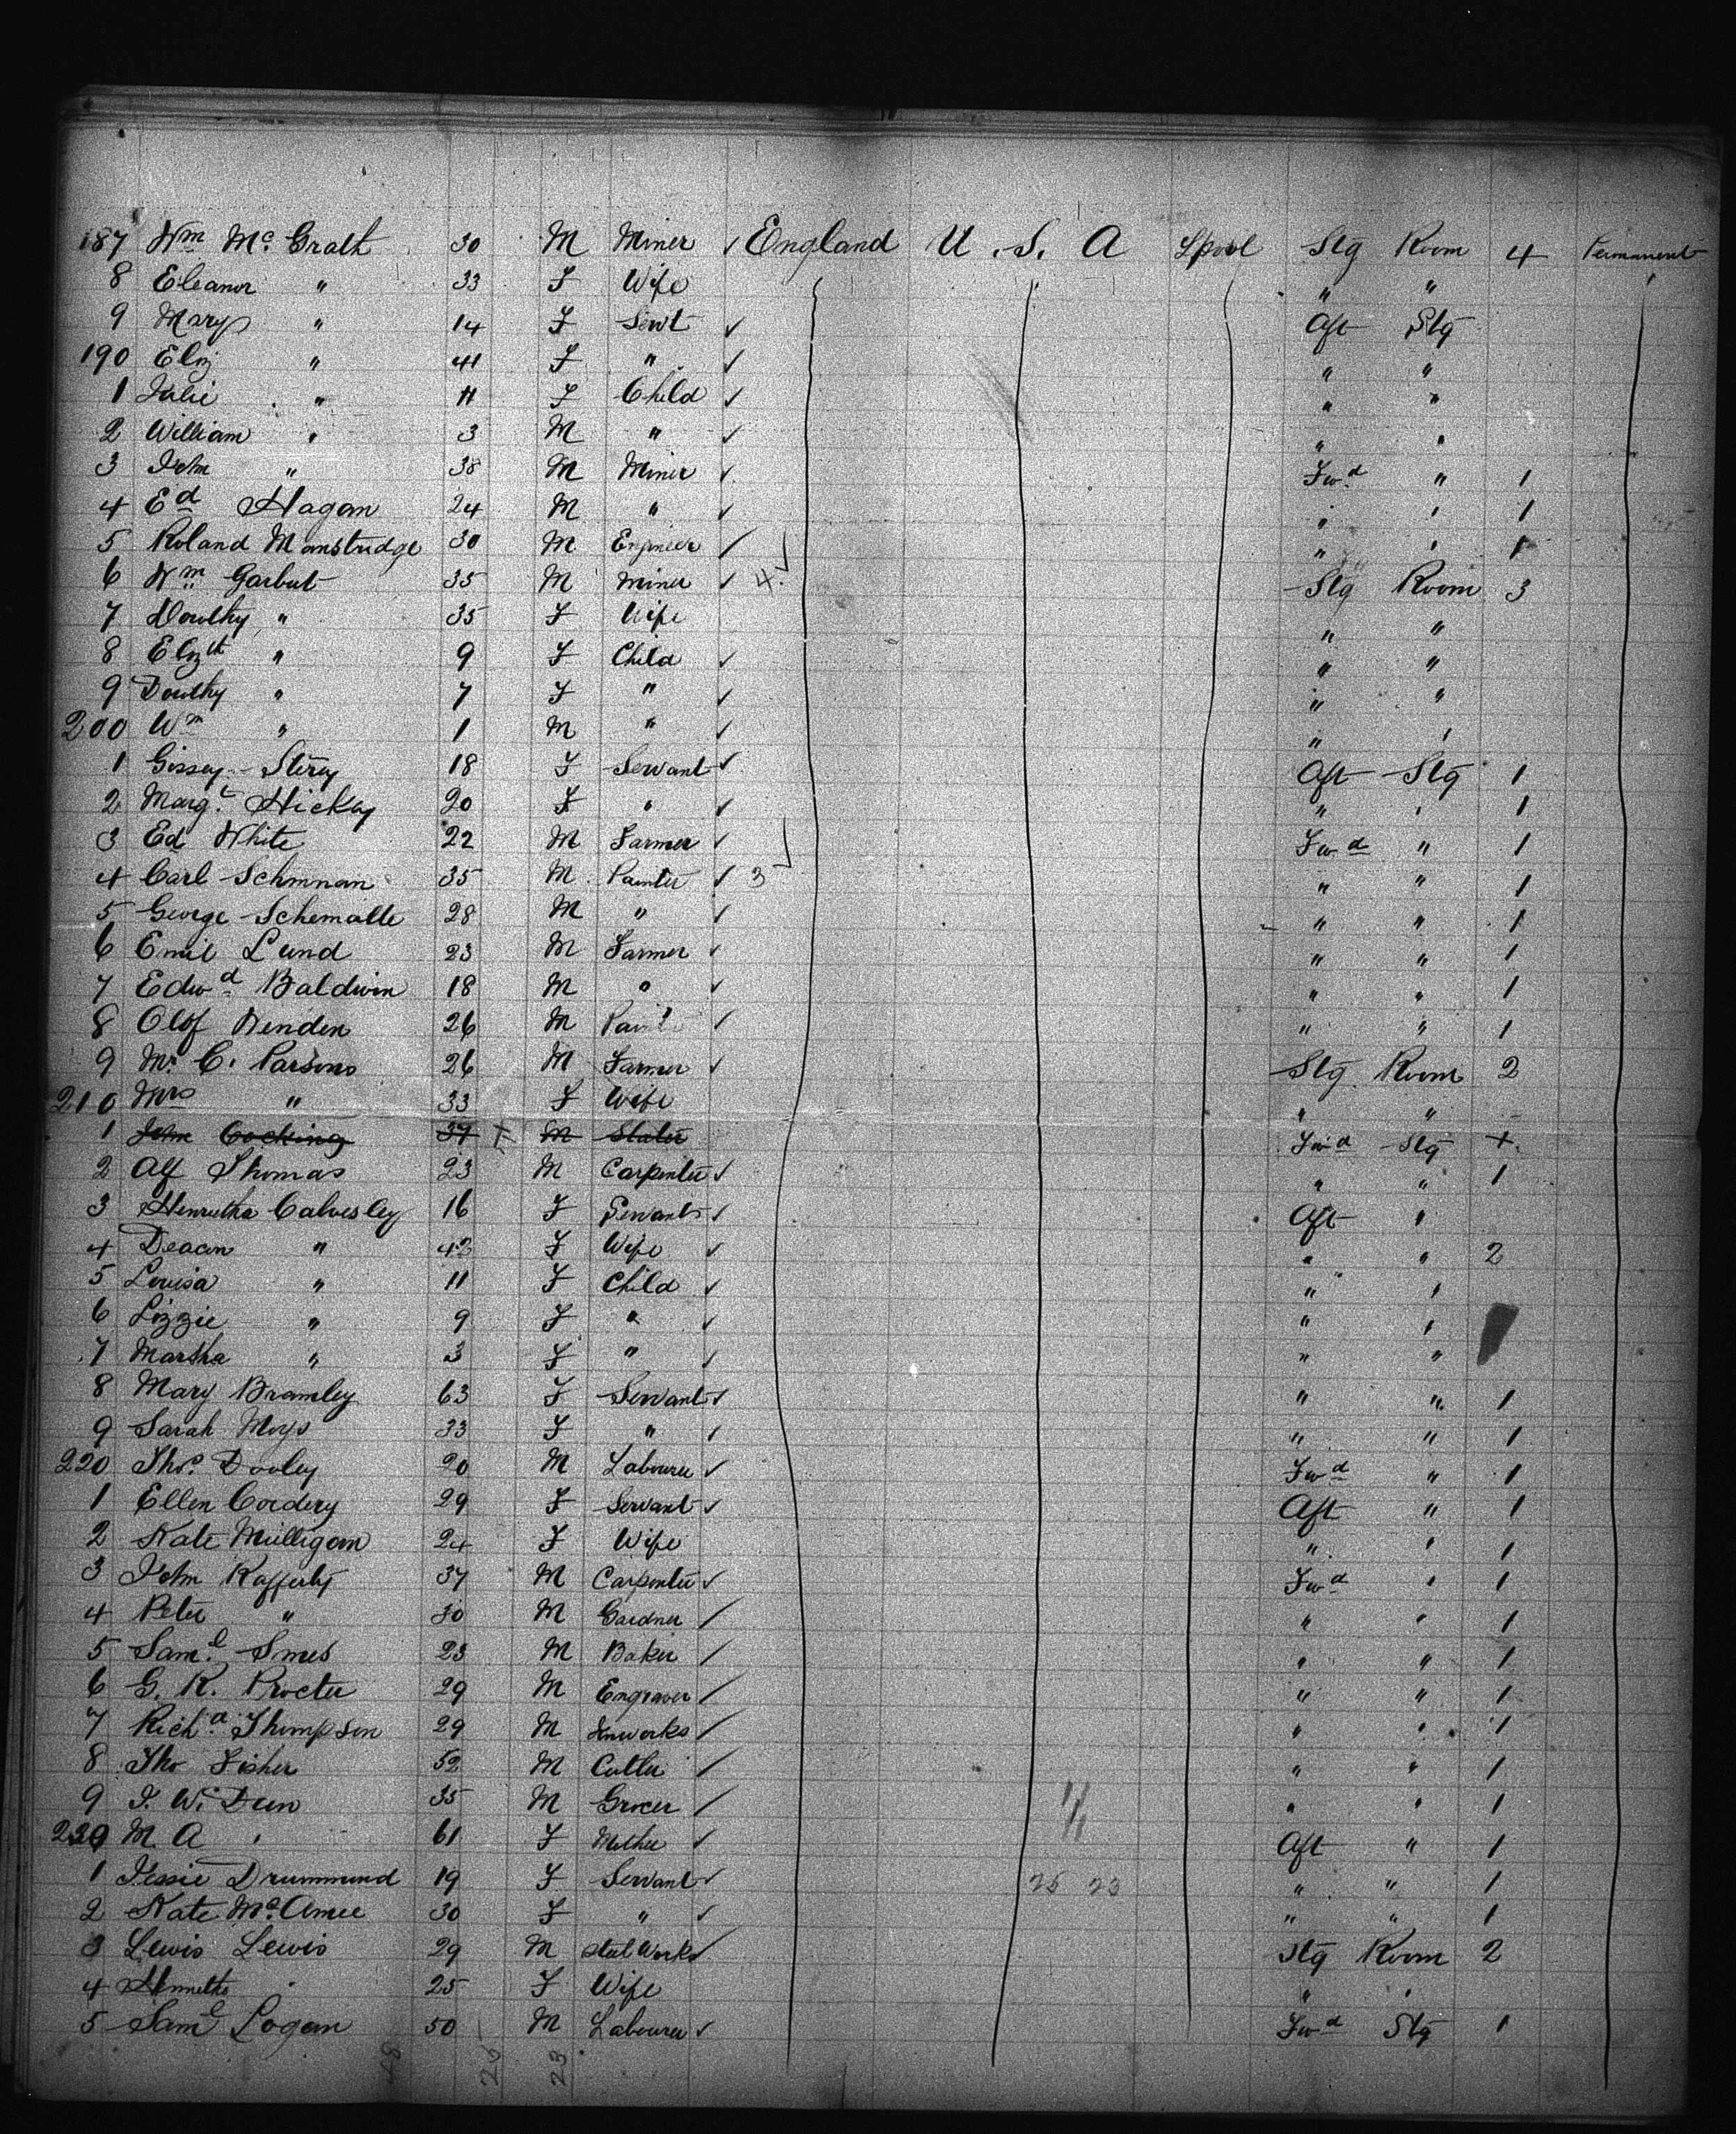 187 Wm Mc. Grath 30 M Miner ✓ England U. S. A Lpool Stg Room 4 Permanent
8 Eleanor " 33 F Wife " "
9 Mary " 14 F Servt ✓ Aft Stg
190 Eliz " 41 F " ✓ " "
1 Julie " 11 F Child ✓ " "
2 William " 3 M " ✓ " "
3 John " 38 M Miner ✓ Fwd " 1
4 Ed Hagan 24 M " ✓ " " 1
5 Roland Manstridge 30 M Engineer ✓ " " 1
6 Wm Garbut 35 M Miner ✓ 4 ✓ Stg Room 3
7 Dorothy " 35 F Wife " "
8 Elizth " 9 F Child ✓ " "
9 Dorothy " 7 F " ✓ " "
200 Wm " 1 M " ✓ " "
1 Gissey Steroy 18 F Servant ✓ Aft Stg 1
2 Margt Hickey 20 F " ✓ " " 1
3 Ed White 22 M Farmer ✓ Fwd " 1
4 Carl Schmnan 35 M Painter ✓ 3 ✓ " " 1
5 George Schemalle 28 M " ✓ " " 1
6 Emil Lund 23 M Farmer ✓ " " 1
7 Edwd Baldwin 18 M " ✓ " " 1
8 Olof Benden 26 M ✓ " " 1
9 Mr C. Parsons 26 M Farmer ✓ Stg Room 2
210 Mrs " 33 F Wife " "
1 John Cocking 39 M Slater Fwd Stg +
2 Alf Thomas 23 M Carpenter ✓ " " 1
3 Henrietta Calvesley 16 F Servant ✓ Aft "
4 Deacon " 43 F Wife ✓ " " 2
5 Louisa " 11 F Child ✓ " "
6 Lizzie " 9 F " ✓ " "
7 Martha " 3 F " ✓ " "
8 Mary Bramley 63 F Servant ✓ " " 1
9 Sarah Moys 33 F " ✓ " " 1
220 Thos. Dooley 20 M Labourer ✓ Fwd " 1
1 Ellen Cordery 29 F Servant ✓ Aft " 1
2 Kate Mulligan 24 F Wife " " 1
3 John Rafferty 37 M Carpenter ✓ Fwd " 1
4 Peter " 30 M Gardner ✓ " " 1
5 Saml. Smes 23 M Baker ✓ " " 1
6 G. R. Procter 29 M Engraver ✓ " " 1
7 Richd. Thompson 29 M Ironworks ✓ " " 1
8 Tho Fisher 52 M Cutler ✓ " " 1
9 J. W. Dun 35 M Grocer ✓ " " 1
230 M. A " 61 F Mother ✓ Aft " 1
1 Jessie Drummond 19 F Servant ✓ 25 23 " " 1
2 Kate McAmee 30 F " ✓ " " 1
3 Lewis Lewis 29 M Steel Works ✓ Stg Room 2
4 " 25 F Wife " "
5 Saml Logan 50 M Labourer ✓ Fwd Stg 1
48 26 23